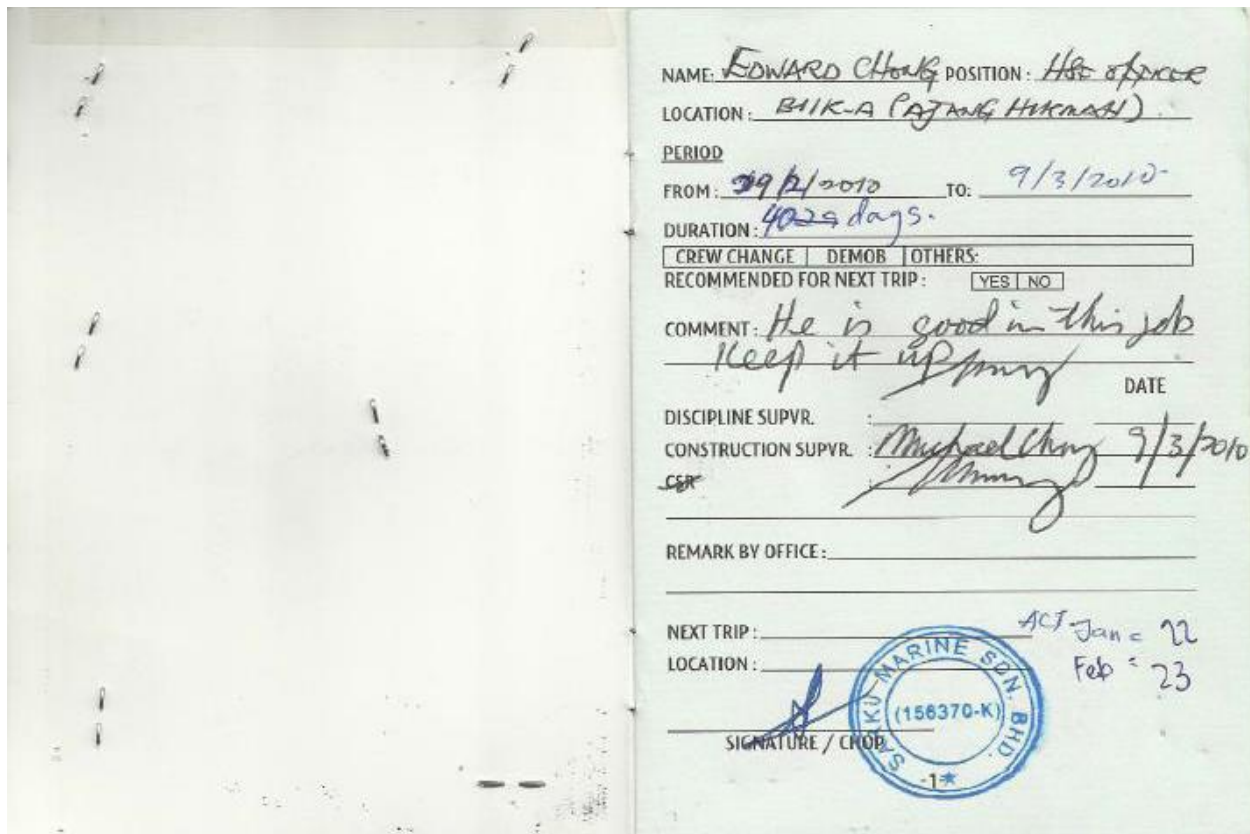 NAME: EDWARD CHONG POSITION: HSE OFFICER
LOCATION: (AJANG HIKMAH)
PERIOD
FROM: /2010 TO: 9/3/2010
DURATION: 40 29 days.
CREW CHANGE DEMOB OTHERS:
RECOMMENDED FOR NEXT TRIP: YES NO
COMMENT: He is good in this job
Keep it up
DATE
DISCIPLINE SUPVR. :
CONSTRUCTION SUPVR. : Michael Chong 9/3/2010
CSR
REMARK BY OFFICE:
NEXT TRIP: ACT Jan = 22
LOCATION: Feb = 23
SARKU MARINE SDN. BHD.
(156370-K)
SIGNATURE / CHOP
-1-